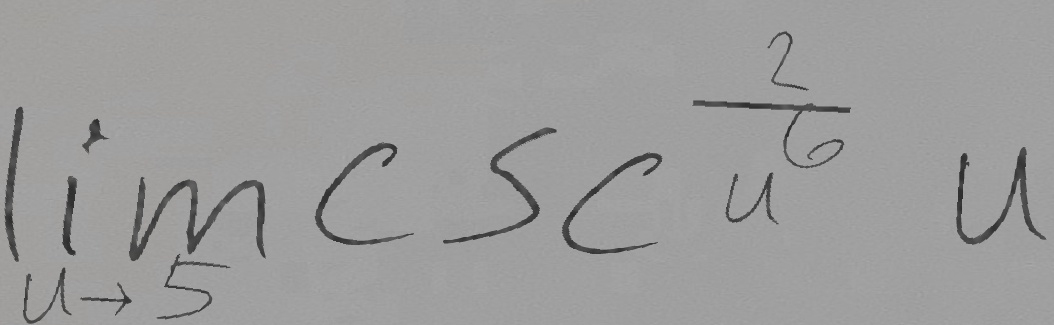 \lim_{u \to 5} \csc^{\frac{2}{u^6}} u